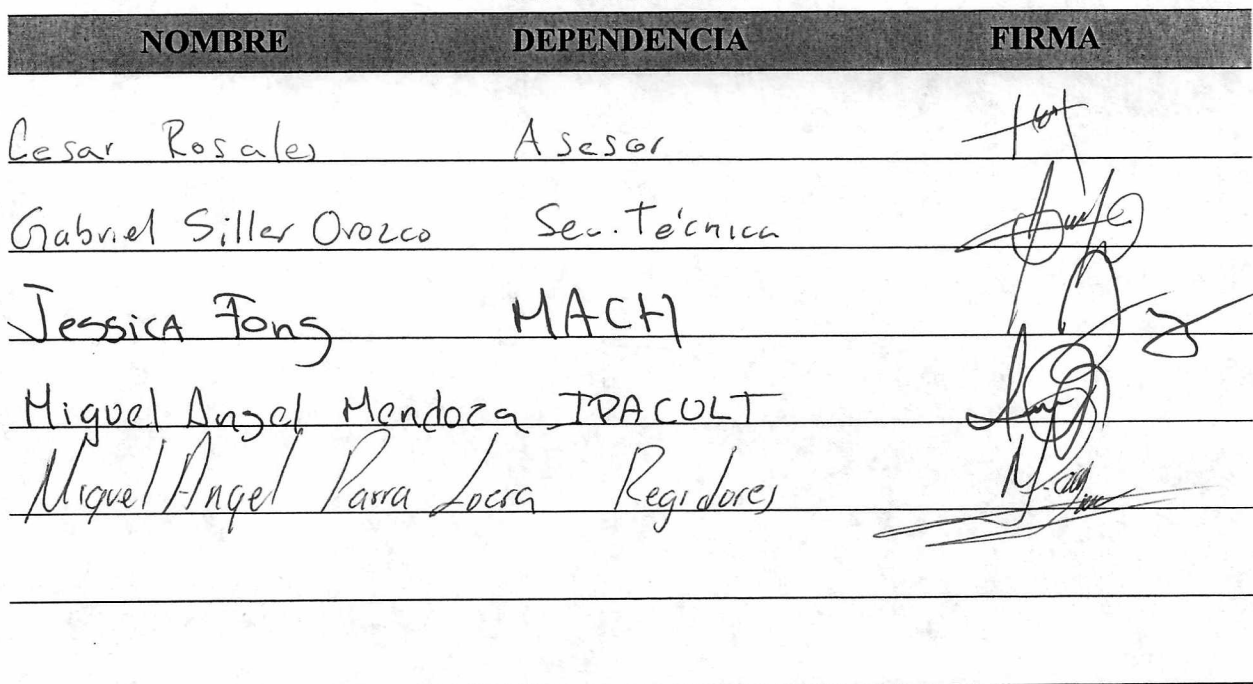 NOMBRE DEPENDENCIA FIRMA
Cesar Rosales Asesor
Gabriel Siller Orozco Sec. Técnica
Jessica Fong MACH
Miguel Angel Mendoza IPACULT
Miguel Angel Parra Loera Regidores